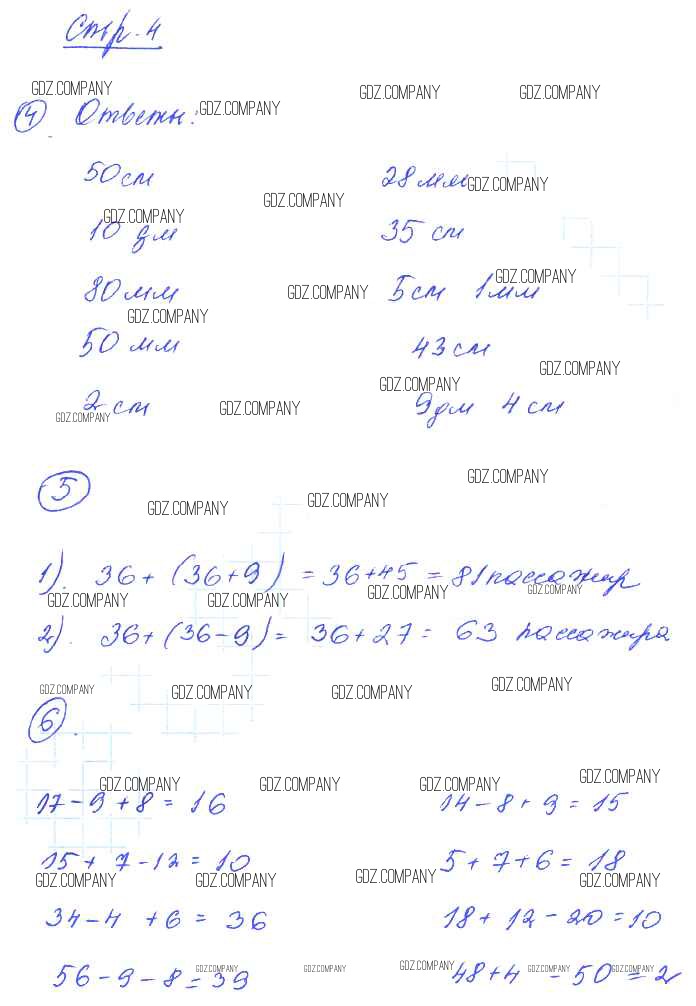 Стр. 4
GDZ.COMPANY GDZ.COMPANY GDZ.COMPANY GDZ.COMPANY
④ Ответы:
50 см 28 мм GDZ.COMPANY
GDZ.COMPANY GDZ.COMPANY
10 дм 35 см
GDZ.COMPANY
80 мм GDZ.COMPANY 5 см 1 мм
GDZ.COMPANY
50 мм 43 см
GDZ.COMPANY GDZ.COMPANY
2 см GDZ.COMPANY 9 дм 4 см
GDZ.COMPANY
⑤ GDZ.COMPANY
GDZ.COMPANY GDZ.COMPANY
1). 36 + (36 + 9) = 36 + 45 = 81 пассажир
GDZ.COMPANY GDZ.COMPANY GDZ.COMPANY GDZ.COMPANY
2). 36 + (36 - 9) = 36 + 27 = 63 пассажира
GDZ.COMPANY GDZ.COMPANY GDZ.COMPANY GDZ.COMPANY
⑥.
GDZ.COMPANY GDZ.COMPANY GDZ.COMPANY GDZ.COMPANY
17 - 9 + 8 = 16 14 - 8 + 9 = 15
15 + 7 - 12 = 10 5 + 7 + 6 = 18
GDZ.COMPANY GDZ.COMPANY GDZ.COMPANY GDZ.COMPANY
34 - 4 + 6 = 36 18 + 12 - 20 = 10
56 - 9 - 8 = 39 48 + 4 - 50 = 2
GDZ.COMPANY GDZ.COMPANY GDZ.COMPANY GDZ.COMPANY GDZ.COMPANY